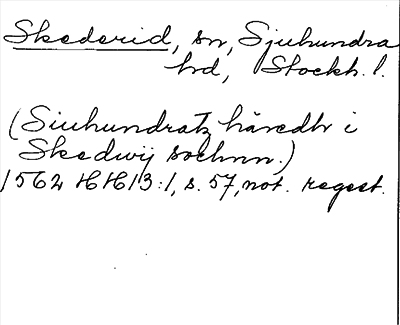 Skederid, sn, Sjuhundra
hd, Stockh. l.
(Siuhundratz häredtr i
Skedwij sochnn.)
1562 HH 13:1, s. 57, not. regest.